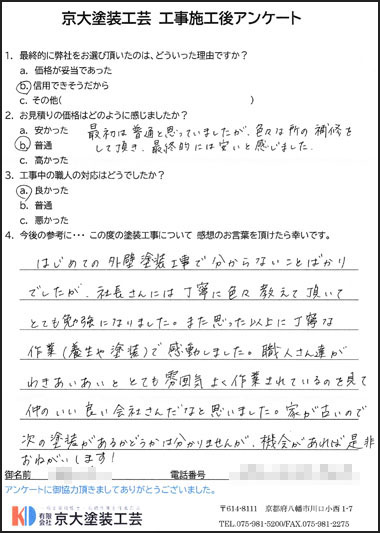 京大塗装工芸 工事施工後アンケート
1．最終的に弊社をお選び頂いたのは、どういった理由ですか？
a．価格が妥当であった
b.信用できそうだから
c．その他(　　　　　　　　　　)
2．お見積りの価格はどのように感じましたか？
a．安かった
最初は普通と思っていましたが、色々な所の補修を
b．普通
して頂き、最終的には安いと感じました。
c．高かった
3．工事中の職人の対応はどうでしたか？
a．良かった
b．普通
c．悪かった
4．今後の参考に・・・ この度の塗装工事について 感想のお言葉を頂けたら幸いです。
はじめての外壁塗装工事で分からないことばかり
でしたが、社長さんには丁寧に色々教えて頂いて
とても勉強になりました。また思った以上に丁寧な
作業（養生や塗装）で感動しました。職人さん達が
わきあいあいと とても雰囲気よく作業されているのを見て
仲のいい良い会社さんだなと思いました。家が古いので
次の塗装があるかどうかは分かりませんが、機会があれば是非
おねがいします！
御名前　　　　　　電話番号
アンケートに御協力頂きましてありがとうございました。
KD 有限会社 京大塗装工芸
〒614-8111　京都府八幡市川口小西 1-7
TEL.075-981-5200/FAX.075-981-2275